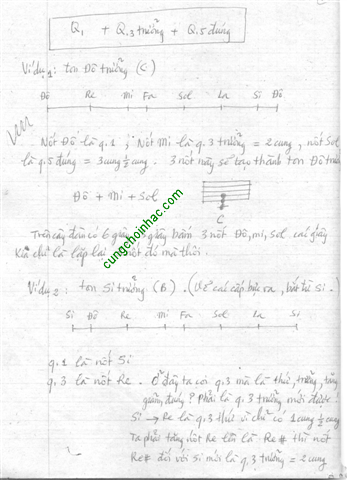 Q1 + Q.3 trưởng + Q.5 đúng
Ví dụ 1: ton Đô trưởng (C)
Đô Re Mi Fa Sol La Si Đô
Nốt Đô là q.1 , Nốt Mi là q.3 trưởng = 2 cung, nốt Sol
là q.5 đúng = 3 cung ½ cung. 3 nốt này sẽ tạo thành ton Đô trưởng
Đô + Mi + Sol
C
Trên cây đàn có 6 giây, giây bấm 3 nốt Đô, mi, sol cái giây
kia chỉ là lập lại nốt đó mà thôi.
cungchoinhac.com
Ví dụ 2: ton Si trưởng (B). (Vẽ cái cấp bực ra, bắt từ Si.)
Si Đô Re Mi Fa Sol La Si
q.1 là nốt Si
q.3 là nốt Re. Ở đây ta coi q.3 mà là thứ, trưởng, tăng
giảm, đúng? Phải là q.3 trưởng mới được!
Si → Re là q.3 thứ vì chỉ có 1 cung ½ cung
Ta phải tăng nốt Re lên là Re# thì nốt
Re# đối với Si mới là q.3 trưởng = 2 cung